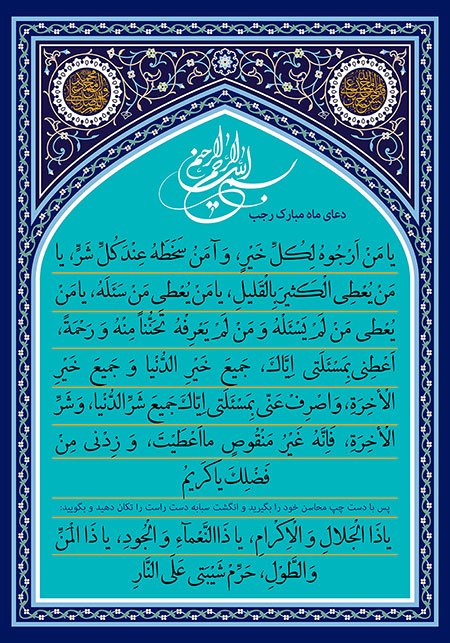 بسم الله الرحمن الرحیم
دعای ماه مبارک رجب
یا مَنْ اَرْجُوهُ لِکُلِّ خَیْرٍ، وَ آمَنُ سَخَطَهُ عِنْدَ کُلِّ شَرٍّ، یا
مَنْ یُعْطِی الْکَثیرَ بِالْقَلیلِ، یا مَنْ یُعْطی مَنْ سَئَلَهُ، یا مَنْ
یُعْطی مَنْ لَمْ یَسْئَلْهُ وَ مَنْ لَمْ یَعْرِفْهُ تَحَنُّناً مِنْهُ وَ رَحْمَةً،
اَعْطِنی بِمَسْئَلَتی اِیَّاکَ، جَمیعَ خَیْرِ الدُّنْیا وَ جَمیعَ خَیْرِ
الْاخِرَةِ، وَ اصْرِفْ عَنّی بِمَسْئَلَتی اِیَّاکَ جَمیعَ شَرِّ الدُّنْیا، وَ شَرِّ
الْاخِرَةِ، فَاِنَّهُ غَیْرُ مَنْقُوصٍ ما اَعْطَیْتَ، وَ زِدْنی مِنْ
فَضْلِکَ یا کَریمُ
پس با دست چپ محاسن خود را بگیرید و انگشت سبابه دست راست را تکان دهید و بگویید:
یا ذَا الْجَلالِ وَ الْاِکْرامِ، یا ذَا النَّعْماءِ وَ الْجُودِ، یا ذَا الْمَنِّ
وَ الطَّوْلِ، حَرِّمْ شَیْبَتی عَلَی النَّارِ